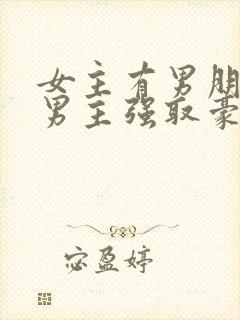 女主有男朋
男主强取豪
宓盈婷